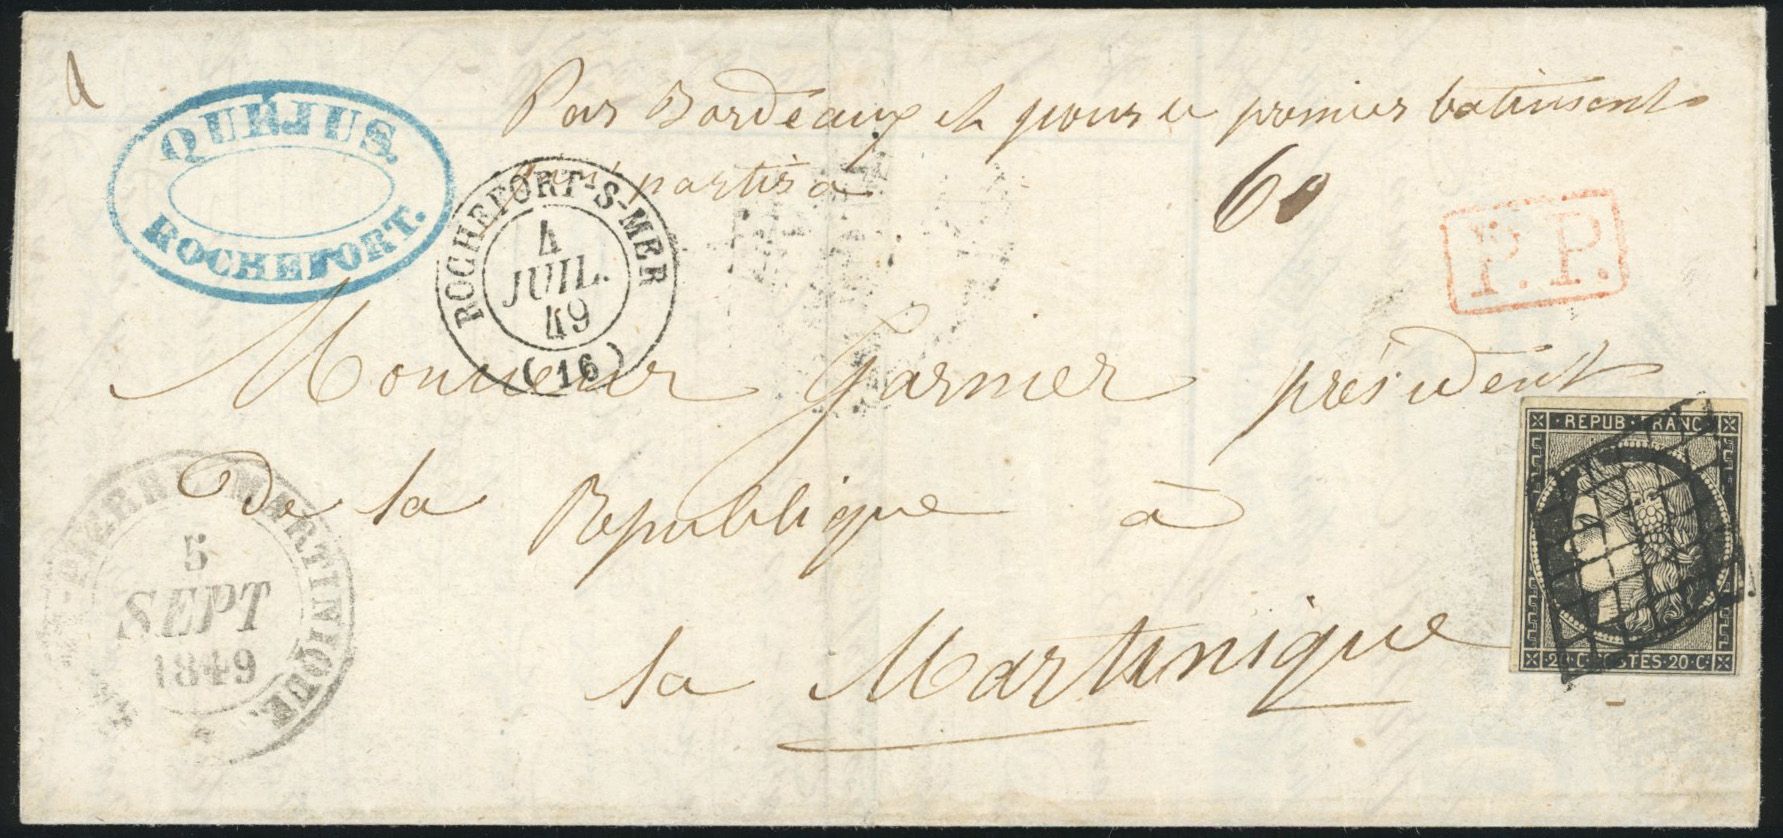 Par Bordeaux et pour le premier batiment
qui partira
60
QURJUS.
ROCHEFORT.
ROCHEFORT-S-MER
4
JUIL.
49
(16)
P.P.
Monsieur Garnier président
De la Republique à
la Martinique
PIERRE MARTINIQUE.
5
SEPT
1849
REPUB·FRANC
20·C·POSTES·20·C·